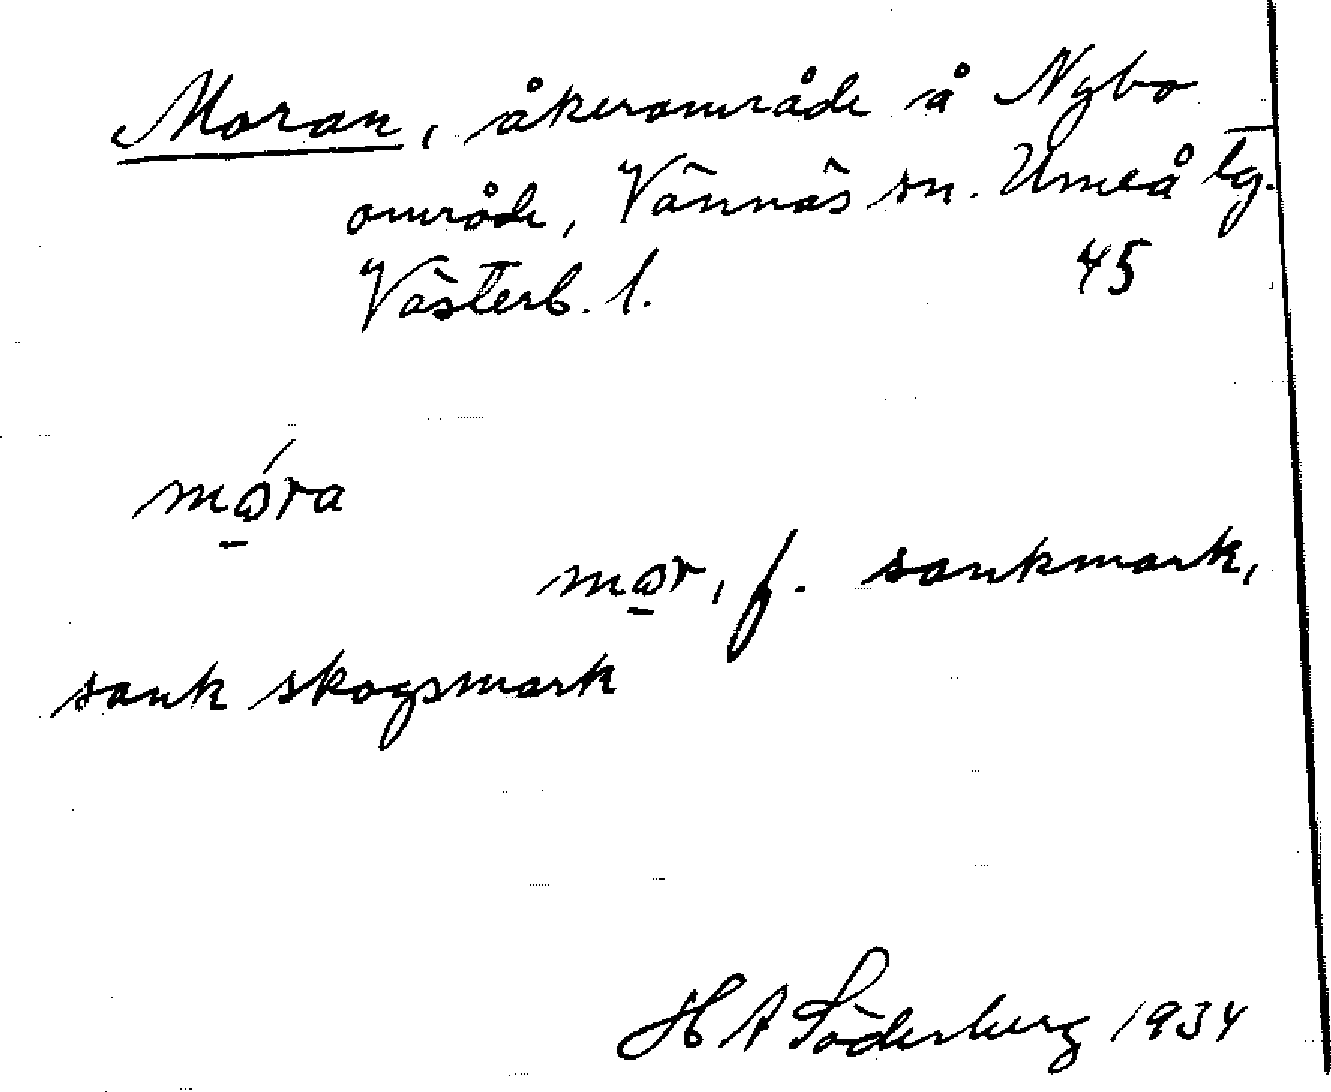 Moran, åkerområde å Nybo
område, Vännäs sn. Umeå tg.
Västerb. l. 45
mǫ́ra
mǫr, f. sankmark,
sank skogsmark
H A Söderberg 1934